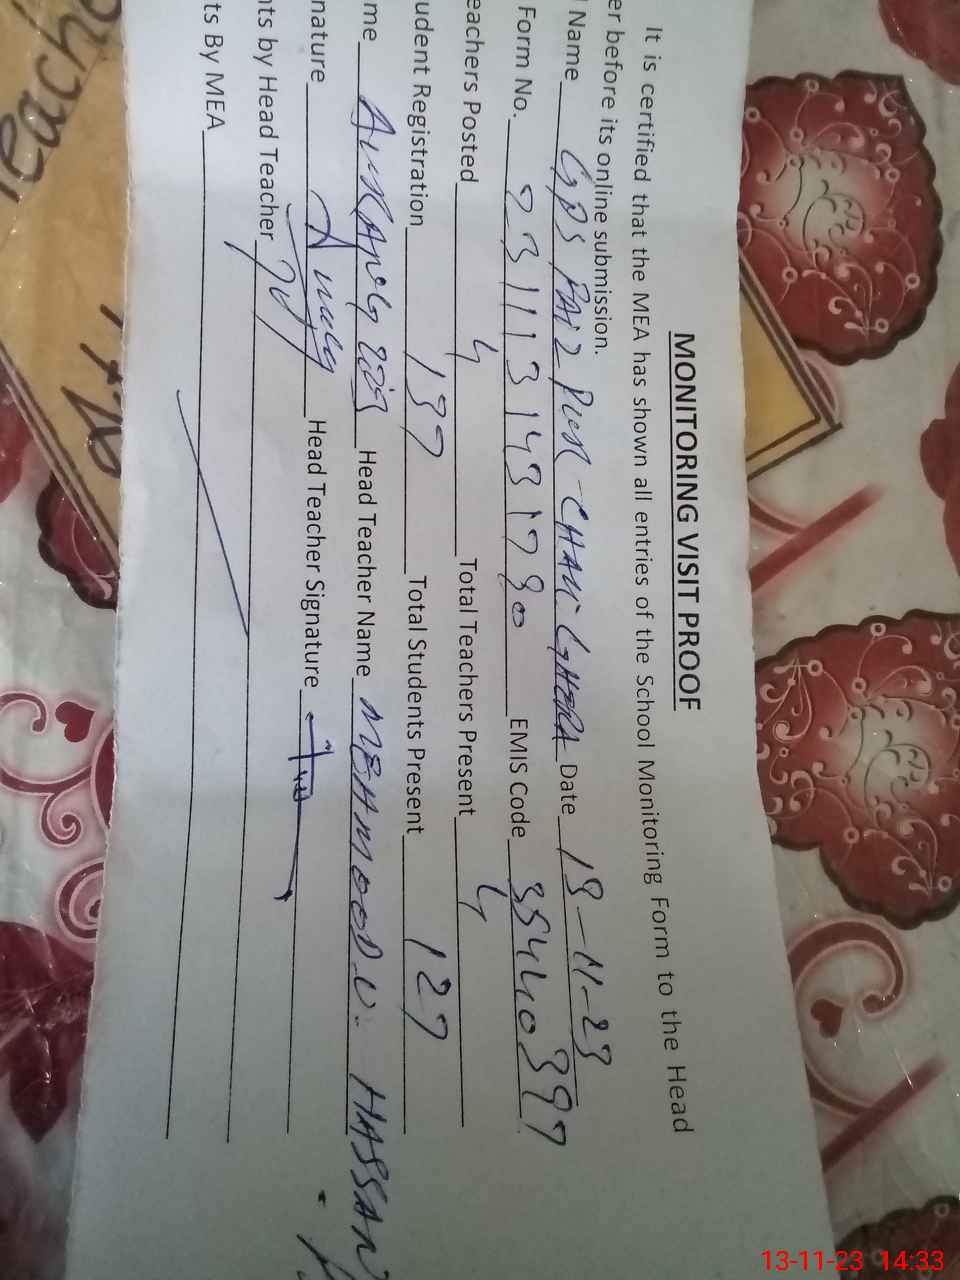 MONITORING VISIT PROOF
It is certified that the MEA has shown all entries of the School Monitoring Form to the Head
er before its online submission.
Name GPS Date 13-11-23
Form No. EMIS Code 35440397
eachers Posted 4 Total Teachers Present 4
udent Registration 137 Total Students Present 127
me Head Teacher Name MEHMOOD.U. HASSAN
nature Head Teacher Signature
nts by Head Teacher
ts By MEA
13-11-23 14:33